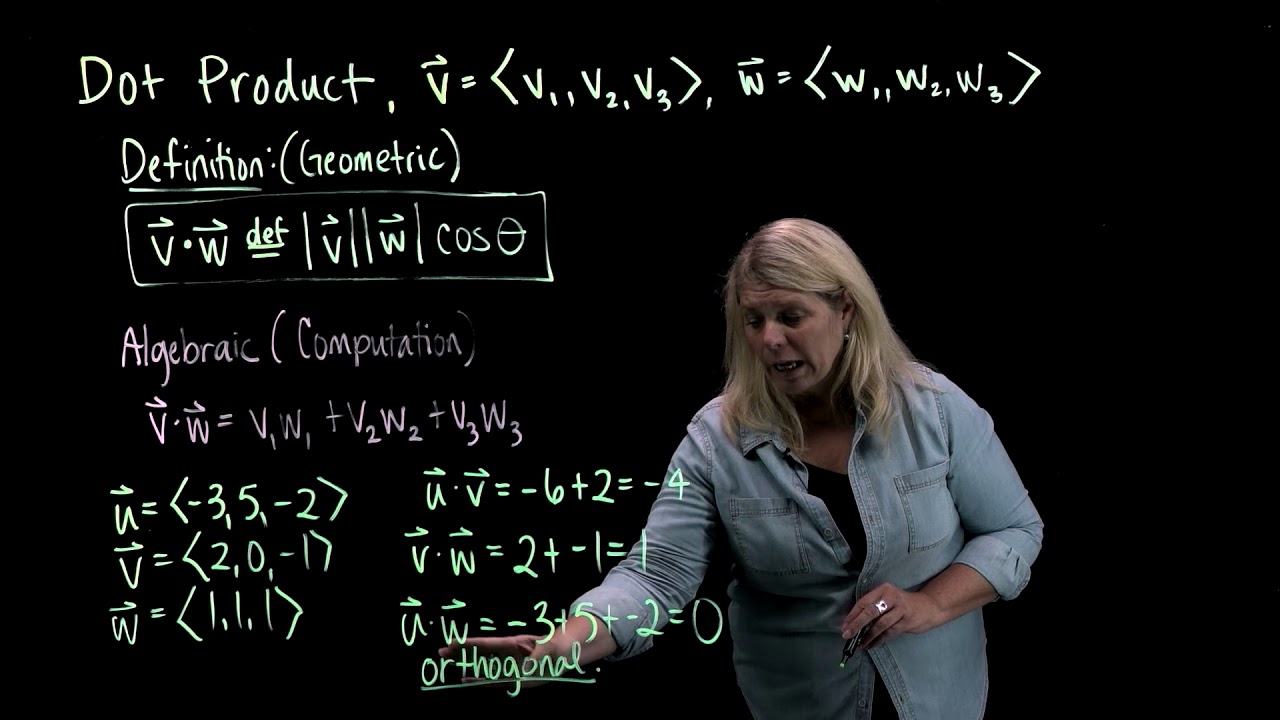 Dot Product, v⃗ = ⟨v₁, v₂, v₃⟩, w⃗ = ⟨w₁, w₂, w₃⟩
Definition: (Geometric)
v⃗·w⃗ def= |v⃗||w⃗| cosθ
Algebraic (Computation)
v⃗·w⃗ = v₁w₁ + v₂w₂ + v₃w₃
u⃗ = ⟨-3, 5, -2⟩
v⃗ = ⟨2, 0, -1⟩
w⃗ = ⟨1, 1, 1⟩
u⃗·v⃗ = -6+2 = -4
v⃗·w⃗ = 2+ -1 = 1
u⃗·w⃗ = -3+5+ -2 = 0
orthogonal.